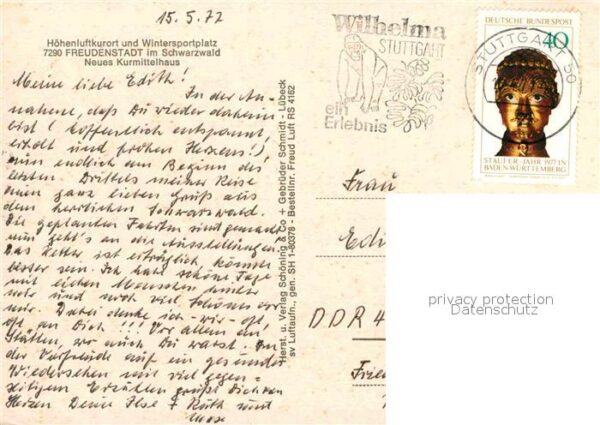 15.5.77
Höhenluftkurort und Wintersportplatz
7290 FREUDENSTADT im Schwarzwald
Neues Kurmittelhaus
Meine liebe Edith!
In der An-
nahme, daß Du wieder daheim
bist (hoffentlich entspannt,
erholt und frohen Herzens!),
nun endlich am Beginn des
letzten Drittels meiner Reise
einen ganz lieben Gruß aus
dem herrlichen Schwarzwald.
Die geplanten Fahrten sind gemacht
nun geht's an die Ausstellungen.
Das Wetter ist erträglich, könnte
besser sein. Ich habe schöne Tage
mit lieben Menschen hinter
mir und noch viel Schönes vor
mir. Dabei denke ich wir oft,
oft an Dich!!! Vor allem an
Stätten, wo auch Du warst. In
der Vorfreude auf ein gesundes
Wiedersehen mit viel gegen-
seitigem Erzählen grüßt Dich von
Herzen Deine Ilse + Ruth und
Herst. u. Verlag Schöning & Co + Gebrüder Schmidt - Lübeck
sv Luftaufn., gen. SH 1-80378 - Bestellnr. Freud Luft RS 4162
Wilhelma
STUTTGART
ein
Erlebnis
STUTTGART
50
DEUTSCHE BUNDESPOST
40
STAUFER-JAHR 1977 IN
BADEN-WÜRTTEMBERG
Frau
Edi
DDR 4
Frie
privacy protection
Datenschutz